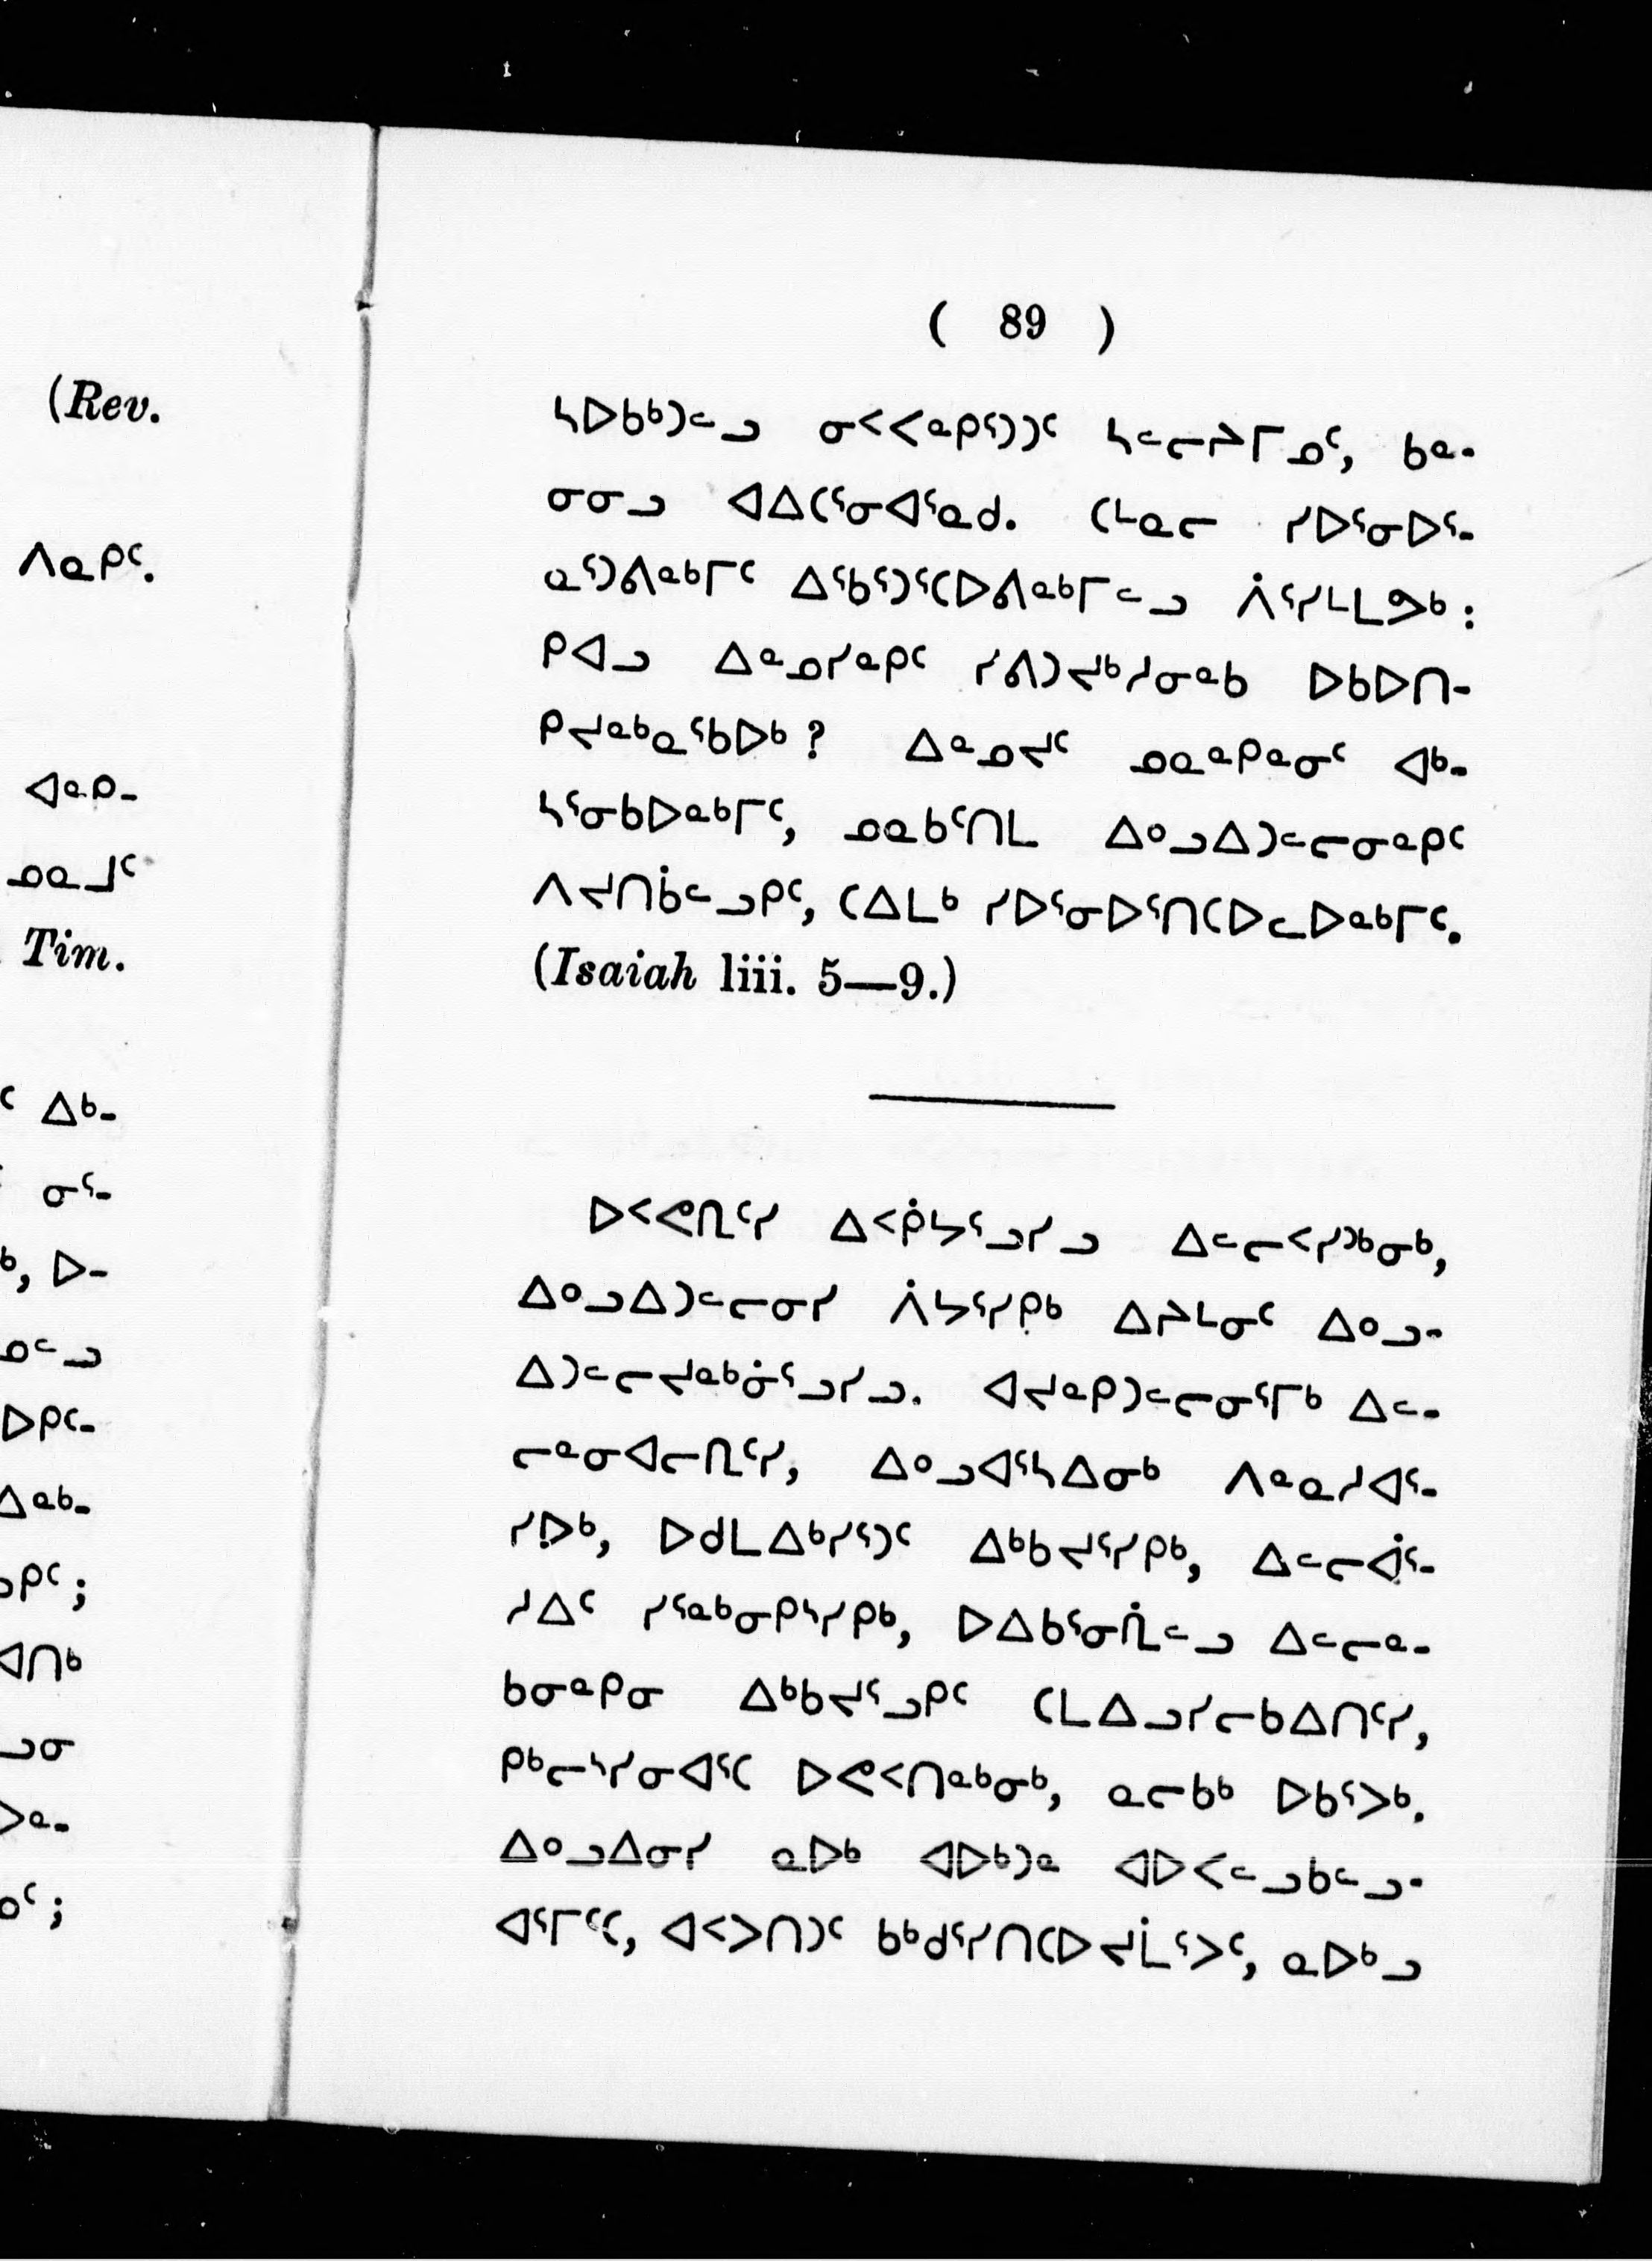 (Rev.
ᐱᓇᑭᑦ.
ᐊᓐᑭ-
ᓄᓇᒧᑦ
Tim.
ᑦ ᐃᒃ-
ᓂᕐ-
ᒃ, ᐅ-
ᓄᓪᓗ
ᐅᑭᑦ-
ᐃᓐᒃ-
ᓗᑭᑦ;
ᐊᑎᒃ
ᓗᓂ
ᐳᓐ-
ᓄᑦ;
( 89 )
ᓴᐅᑲᒃᑐᓪᓗ ᓂᑉᐸᓐᑭᕐᑐᑐᑦ ᓴᓪᓕᔨᒥᓄᑦ, ᑲᓐ-
ᓂᓂᓗ ᐊᐃᑕᕐᓂᐊᕐᓇᑯ. ᑕᒻᓇᓕ ᓯᐅᕐᓂᐅᕐ-
ᓇᕐᑐᕕᓐᒃᒥᑦ ᐃᕐᑲᕐᑐᕐᑕᐅᕕᓐᒃᒥᓪᓗ ᐲᕐᓯᒻᒪᕗᒃ:
ᑭᐊᓗ ᐃᓐᓄᓯᓐᑭᑦ ᓯᕕᑐᔪᒃᓱᓂᓐᑲ ᐅᑲᐅᑎ-
ᑭᔪᓐᒃᓇᕐᑲᐅᒃ? ᐃᓐᓄᔪᑦ ᓄᓇᓐᑭᓐᓂᑦ ᐊᒃ-
ᓴᕐᓂᑲᐅᓐᒃᒥᑦ, ᓄᓇᑲᑦᑎᒪ ᐃᐤᓗᐃᑐᓪᓕᓂᓐᑭᑦ
ᐱᔪᑎᑳᓪᓗᑭᑦ, ᑕᐃᒪᒃ ᓯᐅᕐᓂᐅᕐᑎᑕᐅᓚᐅᓐᒃᒥᑦ.
(Isaiah liii. 5—9.)
ᐅᑉᐯᑎᓪᑦᓯ ᐃᑉᑮᔭᕐᓗᓯᓗ ᐃᓪᓕᑉᓯᑐᒃᓂᒃ,
ᐃᐤᓗᐃᑐᓪᓕᓂᓯ ᐲᔭᕐᓯᑭᒃ ᐃᔨᒻᓂᑦ ᐃᐤᓗ-
ᐃᑐᓪᓕᔪᓐᒃᓃᕐᓗᓯᓗ. ᐊᔪᓐᑭᑐᓪᓕᓂᕐᒥᒃ ᐃᓪ-
ᓕᓐᓂᐊᓕᑎᓪᑦᓯ, ᐃᐤᓗᐊᕐᓴᐃᓂᒃ ᐱᓐᓇᓱᐊᕐ-
ᓯᐅᒃ, ᐅᑯᒪᐃᒃᓯᕐᑐᑦ ᐃᒃᑲᔪᕐᓯᑭᒃ, ᐃᓪᓕᐋᕐ-
ᓱᐃᑦ ᓯᕐᓐᒃᓂᑭᔅᓯᑭᒃ, ᐅᐃᑲᕐᓂᒌᓪᓗ ᐃᓪᓕᓐ-
ᑲᓂᓐᑭᓂ ᐃᒃᑲᔪᕐᓗᑭᑦ ᑕᒪᐃᓗᓯᓕᑲᐃᑎᑦᓯ,
ᑭᒃᓕᔅᓯᓂᐊᕐᑕ ᐅᕙᑉᑎᓐᒃᓂᒃ, ᓇᓕᑲᒃ ᐅᑲᕐᐳᒃ.
ᐃᐤᓗᐃᓂᓯ ᓇᐅᒃ ᐊᐅᒃᑐᓐ ᐊᐅᐸᓪᓗᑲᓪᓗ-
ᐊᕐᒥᕐᑕ, ᐊᑉᐳᑎᑐᑦ ᑲᒃᑯᕐᓯᑎᑕᐅᔪᒫᕐᐳᑦ, ᓇᐅᒃᓗ